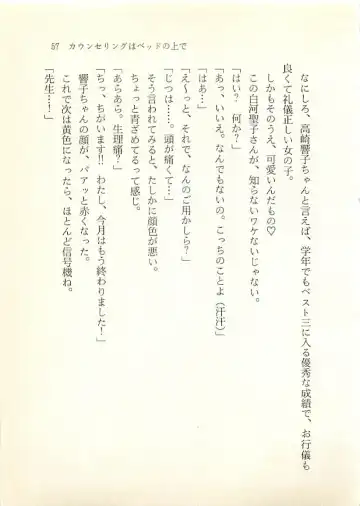 57　カウンセリングはベッドの上で
なにしろ、高崎響子ちゃんと言えば、学年でもベスト三に入る優秀な成績で、お行儀も
良くて礼儀正しい女の子。
しかもそのうえ、可愛いんだもの♡
この白河聖子さんが、知らないワケないじゃない。
「はい？　何か？」
「あっ、いいえ。なんでもないの。こっちのことよ（汗汗）」
「はぁ…」
「え〜っと、それで、なんのご用かしら？」
「じつは……。頭が痛くて…」
そう言われてみると、たしかに顔色が悪い。
ちょっと青ざめてるって感じ。
「あらあら。生理痛？」
「ちっ、ちがいます!!　わたし、今月はもう終わりました！」
響子ちゃんの顔が、パアッと赤くなった。
これで次は黄色になったら、ほとんど信号機ね。
「先生…！」